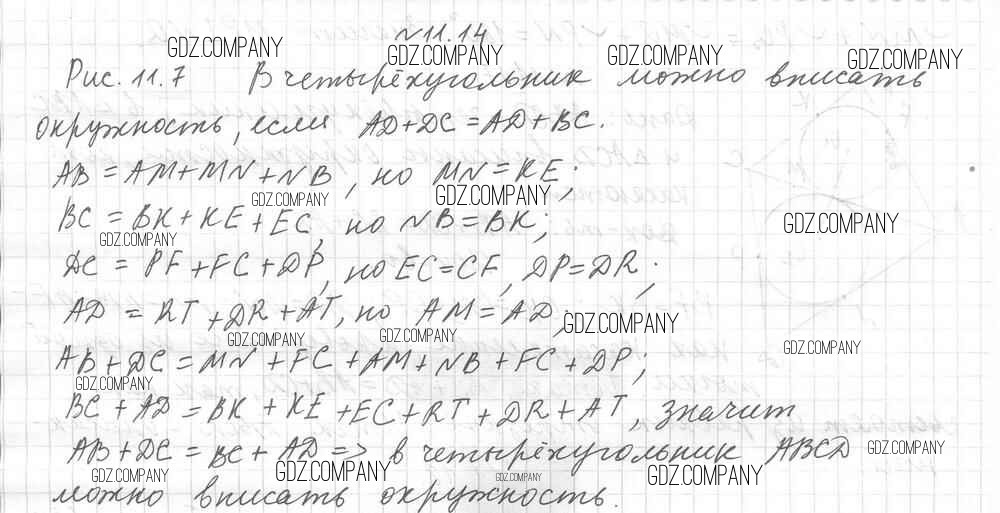 №11.14
GDZ.COMPANY GDZ.COMPANY GDZ.COMPANY GDZ.COMPANY
Рис. 11.7 В четырёхугольник можно вписать
окружность, если AD+DC=AD+BC.
AB=AM+MN+NB, но MN=KE;
GDZ.COMPANY GDZ.COMPANY
BC=BK+KE+EC, но NB=BK; GDZ.COMPANY
GDZ.COMPANY
DC=PF+FC+DP, но EC=CF, DP=DR;
AD=RT+DR+AT, но AM=AD; GDZ.COMPANY
GDZ.COMPANY GDZ.COMPANY GDZ.COMPANY
AB+DC=MN+FC+AM+NB+FC+DP;
GDZ.COMPANY
BC+AD=BK+KE+EC+RT+DR+AT, значит
AB+DC=BC+AD=> в четырёхугольник ABCD GDZ.COMPANY
GDZ.COMPANY GDZ.COMPANY GDZ.COMPANY GDZ.COMPANY
можно вписать окружность.